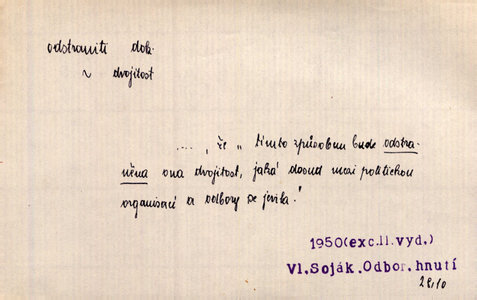 odstraniti dok.
~ dvojitost
...., že „tímto způsobem bude odstra-
něna ona dvojitost, jaká dosud mezi politickou
organisací a odbory se jevila."
1950(exc.II.vyd.)
Vl.Soják.Odbor.hnutí